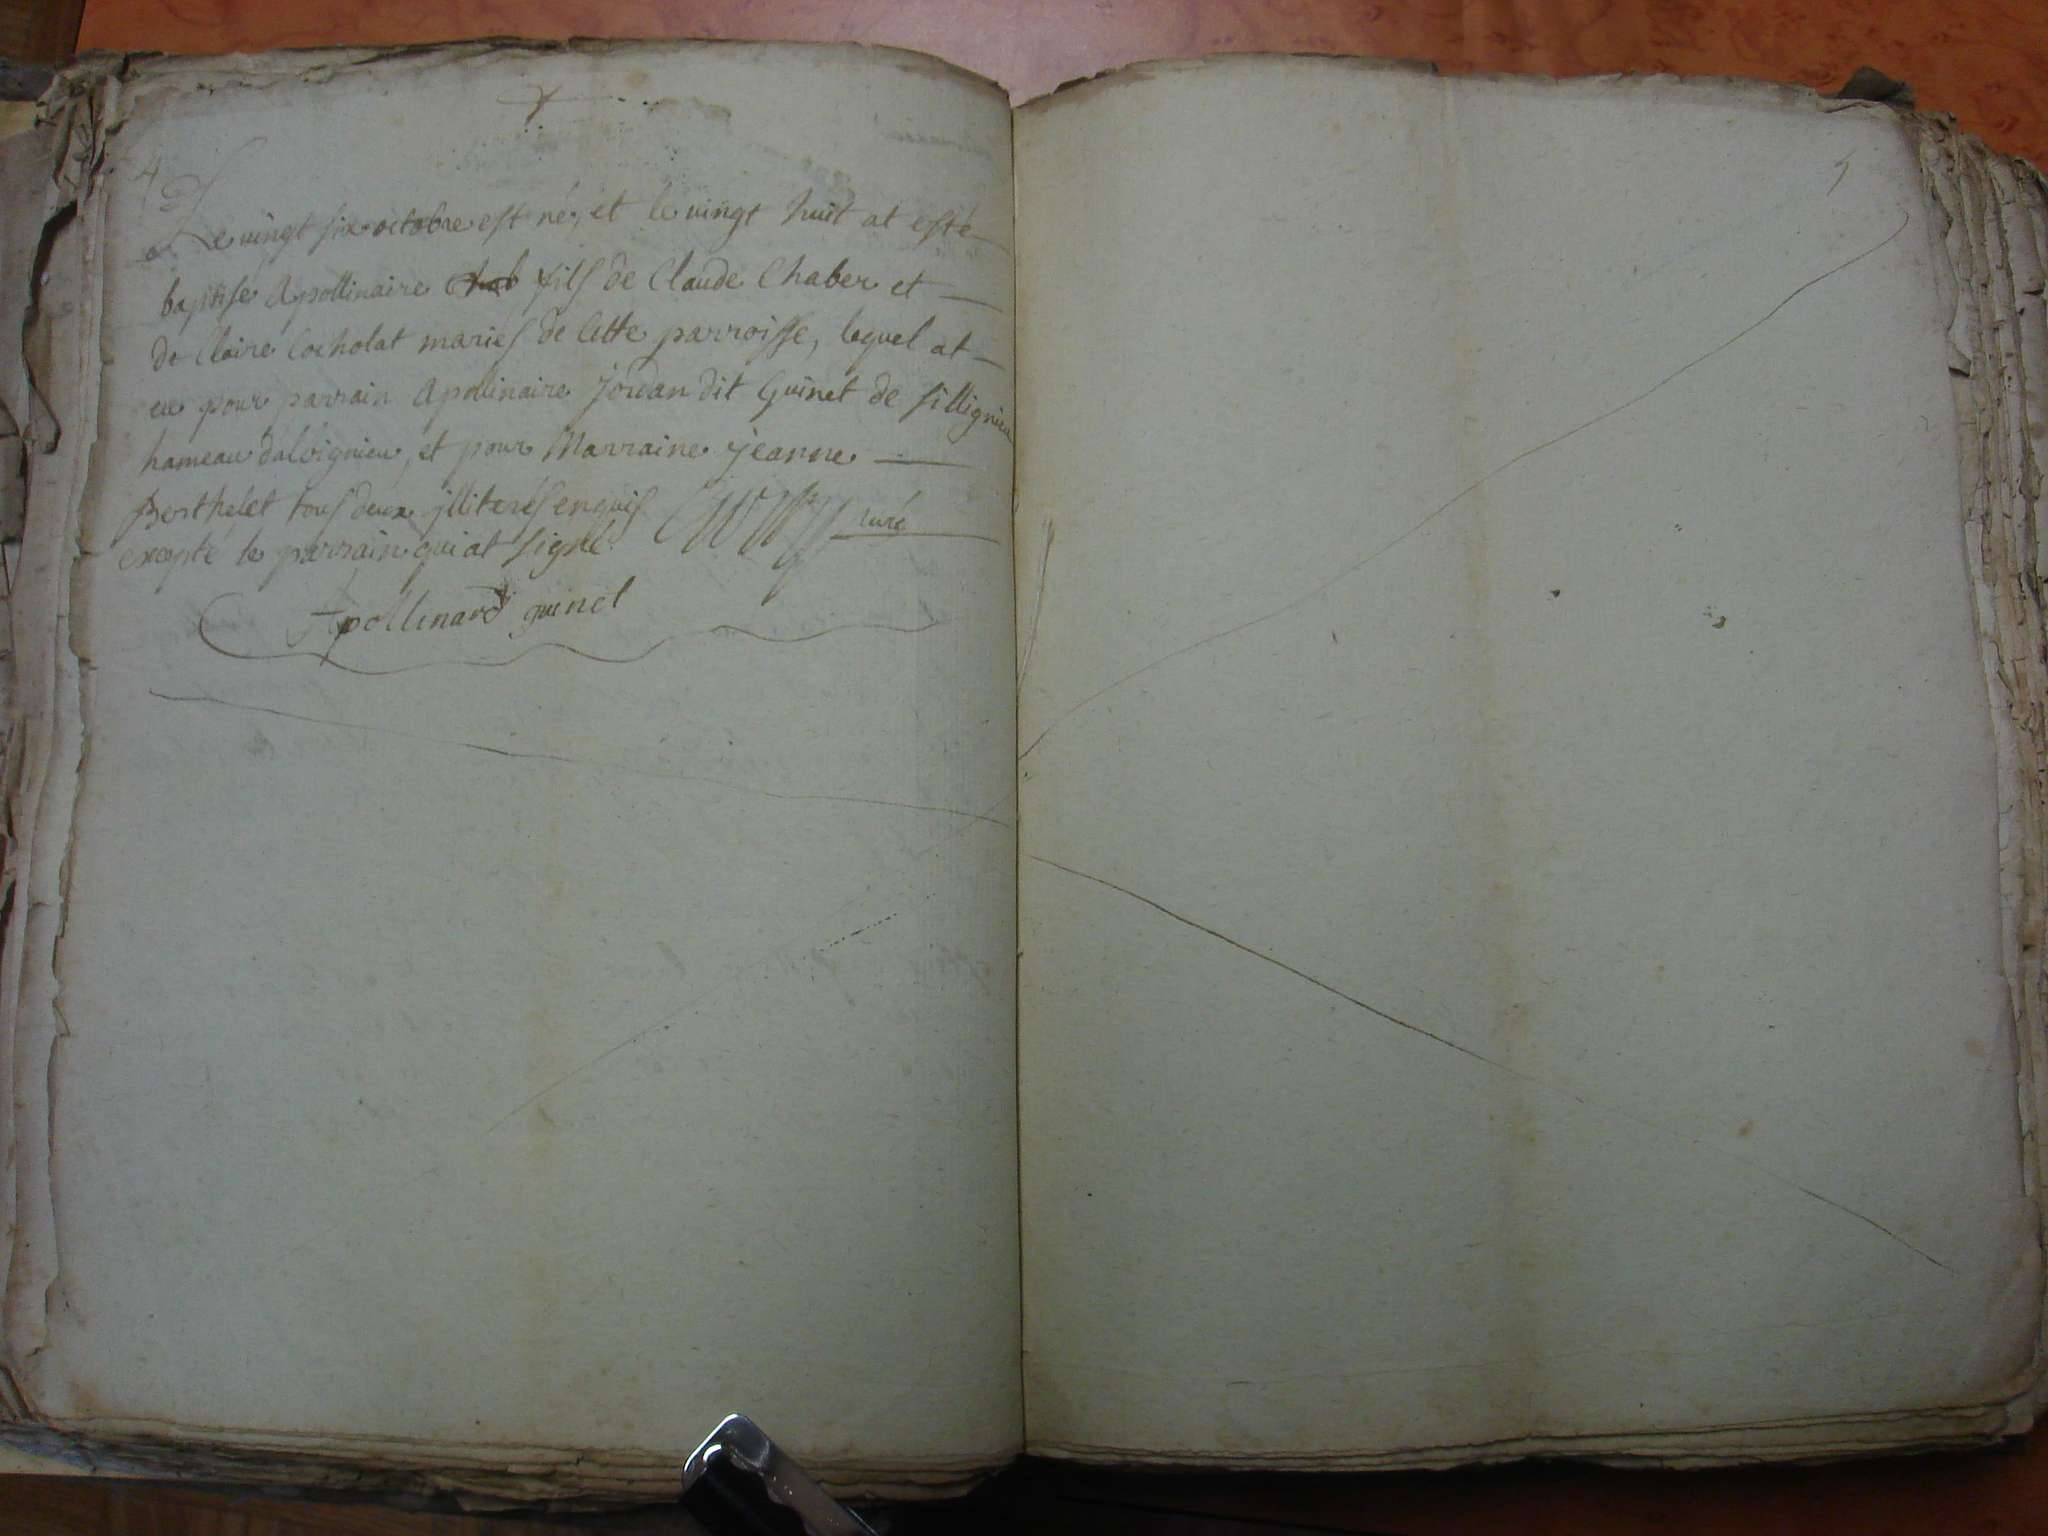 4
Le vingt six octobre est né, et le vingt huit at esté
baptisé Apollinaire fils de Claude Chaber et
de Claire Cocholat mariés de cette parroisse, lequel at
eu pour parrain Apollinaire Jordan dit Guinet de Sillignieu
hameau d'alvignieu, et pour Marraine jeanne
Berthelet tous deux illiterés enquis
curé
excepté le parrain qui at signé
Apollinard guinet
5